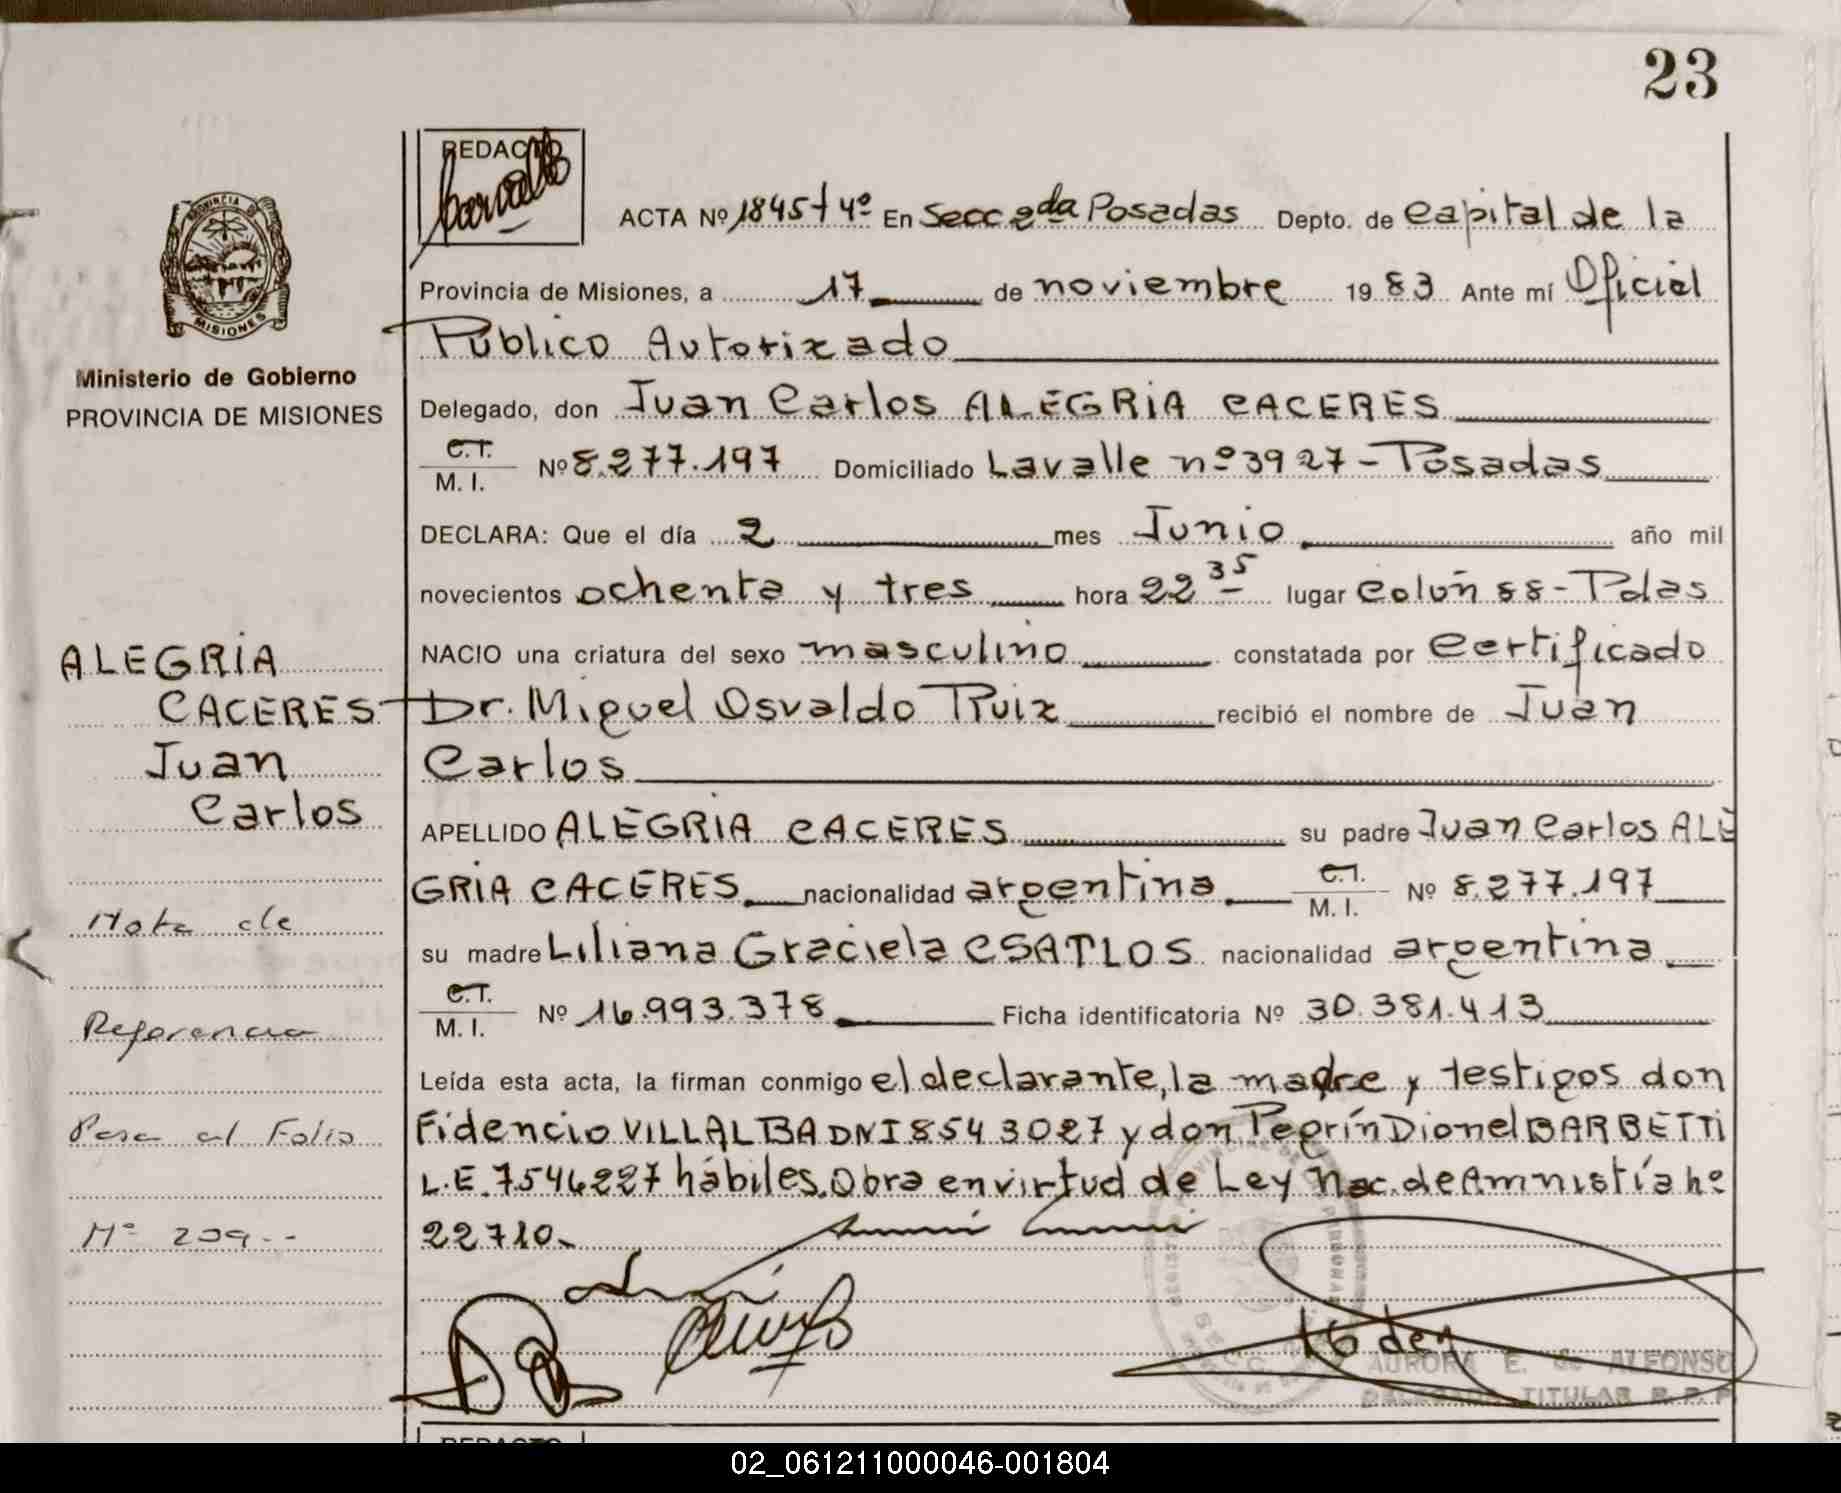 23
REDACTO
ACTA Nº 1845 t 4º En Secc 2da Posadas Depto. de Capital de la
Provincia de Misiones, a 17 de noviembre 1983 Ante mí Oficial
Público Autorizado
PROVINCIA DE
MISIONES
Ministerio de Gobierno
PROVINCIA DE MISIONES
Delegado, don Juan Carlos ALEGRIA CACERES
C.I. M. I. Nº 8.277.197 Domiciliado Lavalle nº 3927 - Posadas
DECLARA: Que el día 2 mes Junio año mil
novecientos ochenta y tres hora 22 35 lugar Colón 88 - Pdas
NACIO una criatura del sexo masculino constatada por Certificado
Dr. Miguel Osvaldo Ruiz recibió el nombre de Juan
Carlos
APELLIDO ALEGRIA CACERES su padre Juan Carlos ALE
GRIA CACERES nacionalidad argentina C.I. M. I. Nº 8.277.197
su madre Liliana Graciela CSATLOS nacionalidad argentina
C.I. M. I. Nº 16.993.378 Ficha identificatoria Nº 30.381.413
Leída esta acta, la firman conmigo el declarante, la madre y testigos don
Fidencio VILLALBA DNI 8543027 y don Pegrín Dionel BARBETTI
L.E. 7546227 hábiles. Obra en virtud de Ley Nac. de Amnistía nº
22710.-
ALEGRIA
CACERES
Juan
Carlos
Nota de
Referencia
Pasa al Folio
Nº 209--
AURORA E. de ALFONSO
DELEGADA TITULAR R. P. P.
REDACTO
02_061211000046-001804